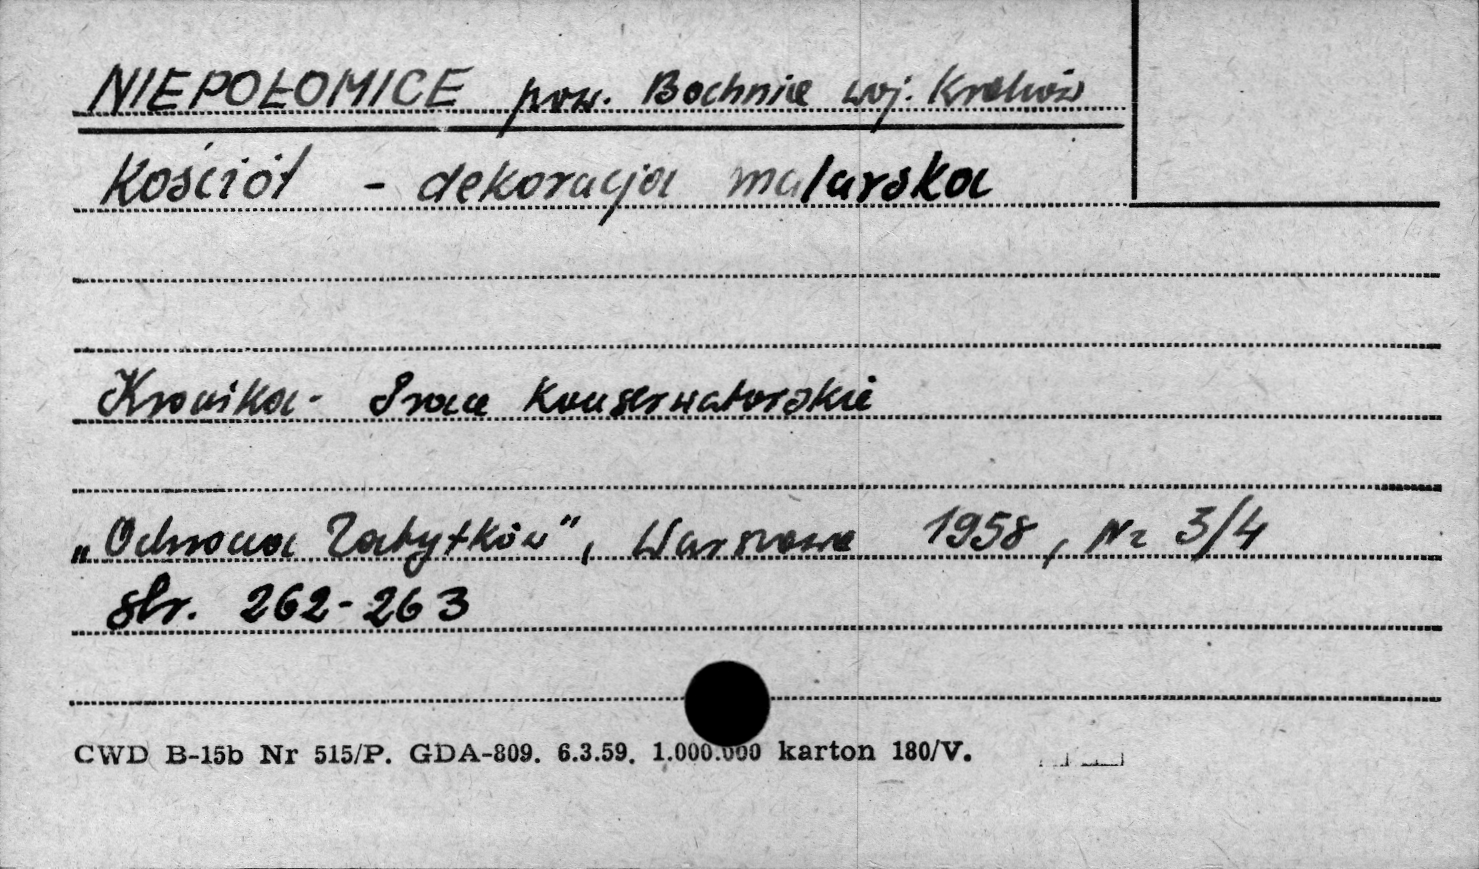 NIEPOŁOMICE pow. Bochnia woj. Kraków
Kościół - dekoracja malarska
Kronika - Prace Konserwatorskie
„Ochrona Zabytków", Warszawa 1958, Nr 3/4
str. 262-263
CWD B-15b Nr 515/P. GDA-809. 6.3.59. 1.000.000 karton 180/V.